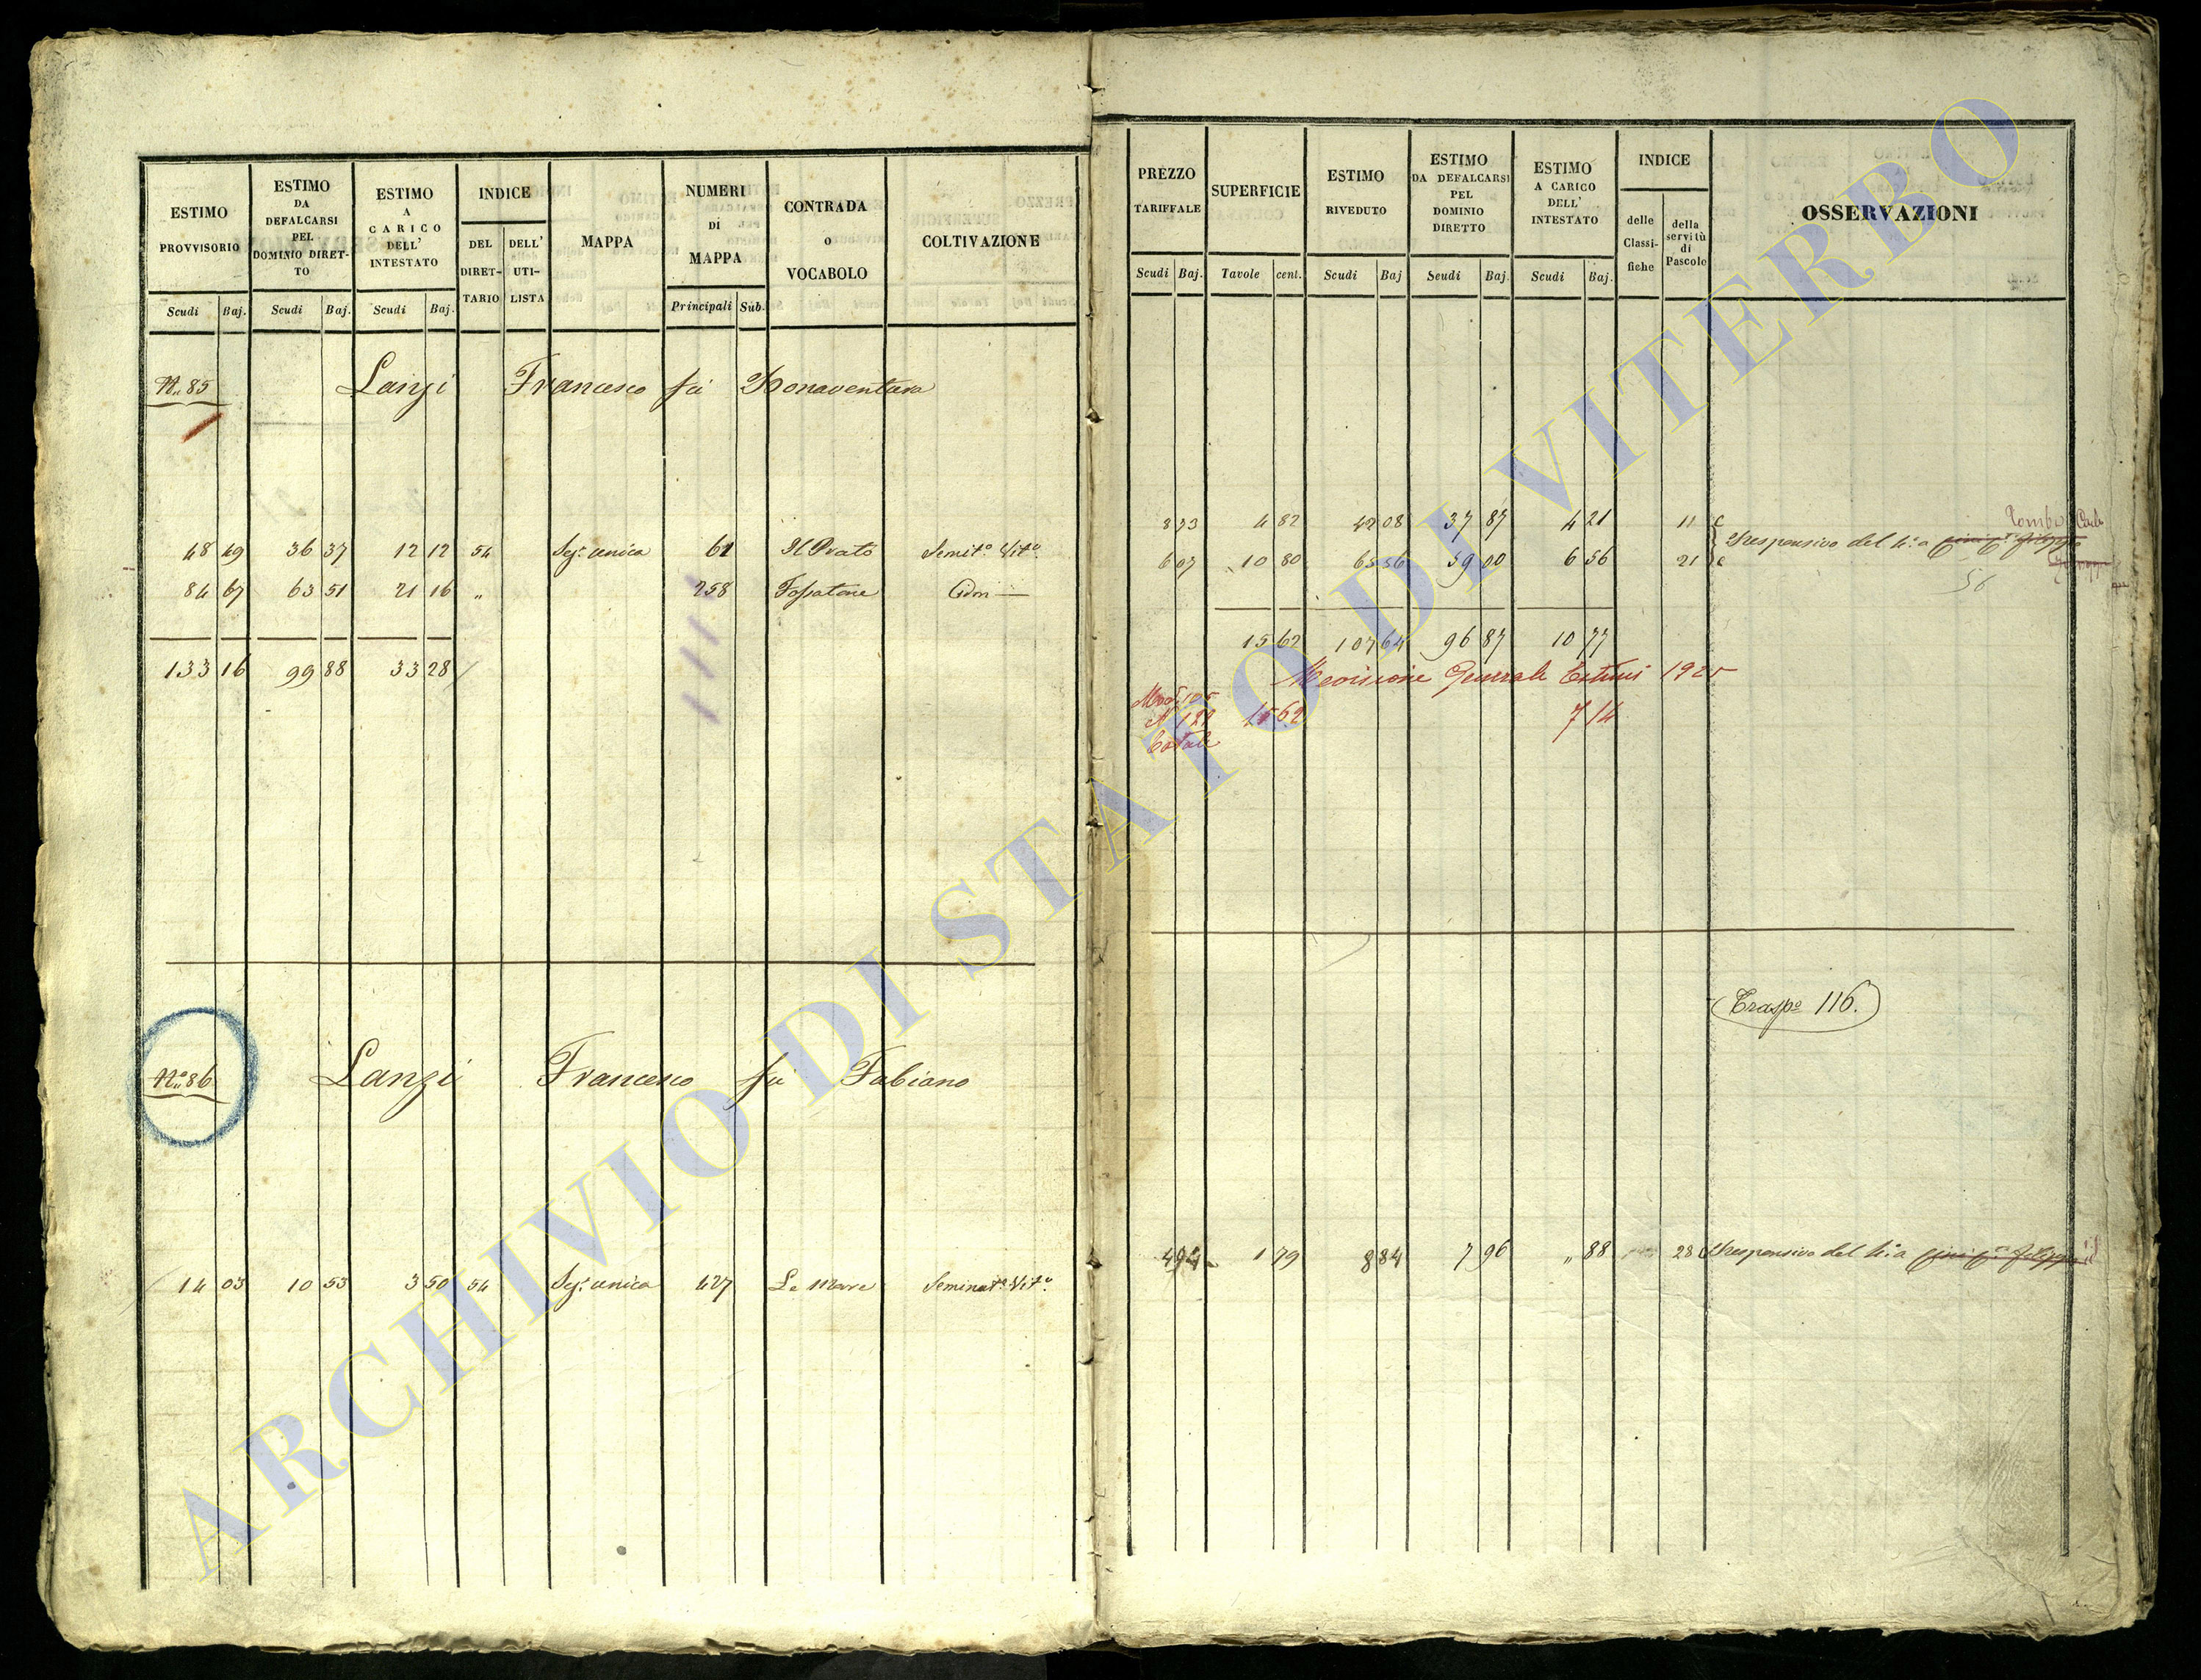 ESTIMO PROVVISORIO
ESTIMO DA DEFALCARSI PEL DOMINIO DIRET-TO
ESTIMO A CARICO DELL' INTESTATO
INDICE
DEL DIRET-TARIO
DELL' UTI-LISTA
MAPPA
NUMERI DI MAPPA
CONTRADA O VOCABOLO
COLTIVAZIONE
Scudi Baj. Scudi Baj. Scudi Baj. Principali Sub.
N.° 85 Lanzi Francesco fu Bonaventura
48 49 36 37 12 12 54 Sez.e unica 61 Il Prato Semit.o Vit.o
84 67 63 51 21 16 " 258 Fossatone Idm
133 16 99 88 33 28
N.° 86 Lanzi Francesco fu Fabiano
14 03 10 53 3 50 54 Sez.e unica 427 Le Mare Seminat.o Vit.o
PREZZO TARIFFALE
SUPERFICIE
ESTIMO RIVEDUTO
ESTIMO DA DEFALCARSI PEL DOMINIO DIRETTO
ESTIMO A CARICO DELL' INTESTATO
INDICE
delle Classi-fiche
della servitù di Pascolo
OSSERVAZIONI
Scudi Baj. Tavole cent. Scudi Baj Scudi Baj. Scudi Baj.
8 73 4 82 42 08 37 87 4 21 11
Responsivo del 4.a
6 07 10 80 65 56 59 00 6 56 21
56
15 62 107 64 96 87 10 77
Revisione Generale Estimi 1925
Mod. 105
15 62 7 14
Totale
Trasp.o 116.
4 94 1 79 8 84 7 96 " 88 28 Responsivo del 4.a
ARCHIVIO DI STATO DI VITERBO